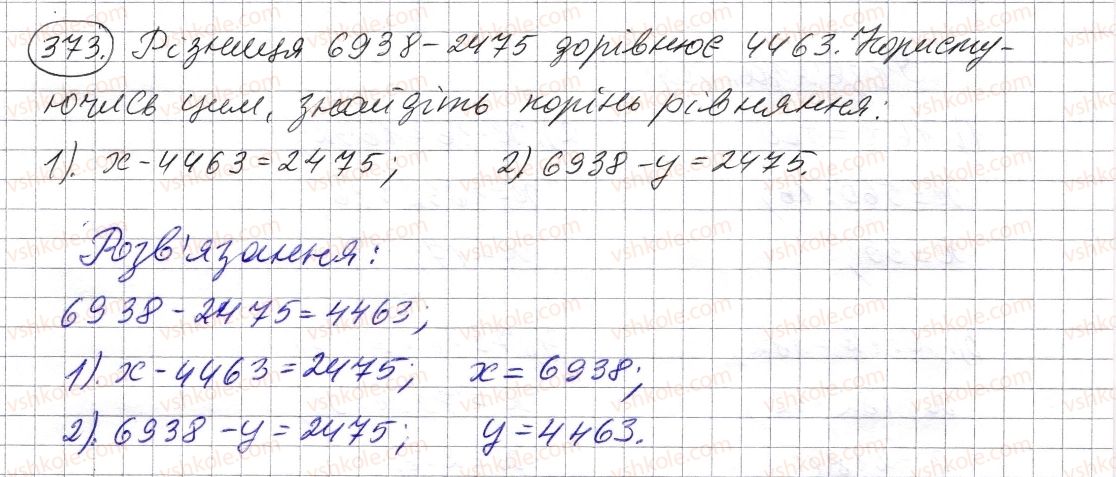 373. Різниця 6938-2475 дорівнює 4463. Користу-
ючись цим, знайдіть корінь рівняння:
1). x-4463=2475; 2). 6938-y=2475.
Розв'язання:
6938-2475=4463;
1). x-4463=2475; x=6938;
2). 6938-y=2475; y=4463.